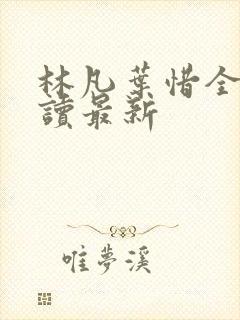 林凡葉惜全
讀最新
唯夢溪